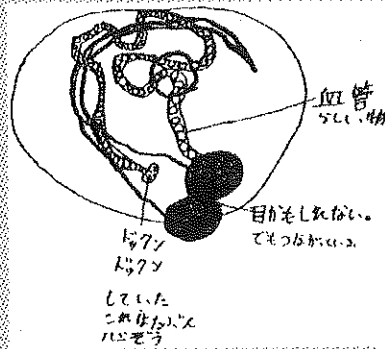 血管
らしい物
目かもしれない。
でもつながっている
ドックン
ドックン
していた
これはたぶん
心ぞう